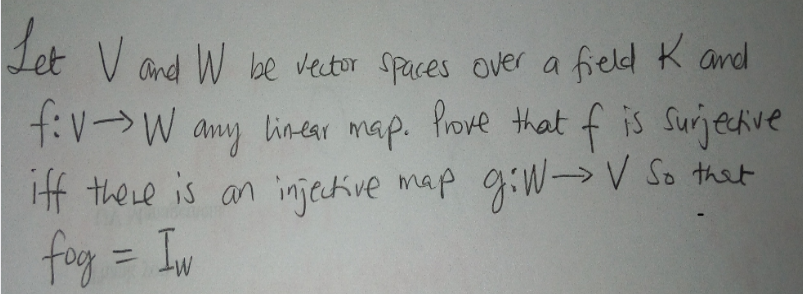 Let V and W be vector spaces over a field K and
f: V → W any linear map. Prove that f is surjective
iff there is an injective map g: W → V so that
fog = I_W